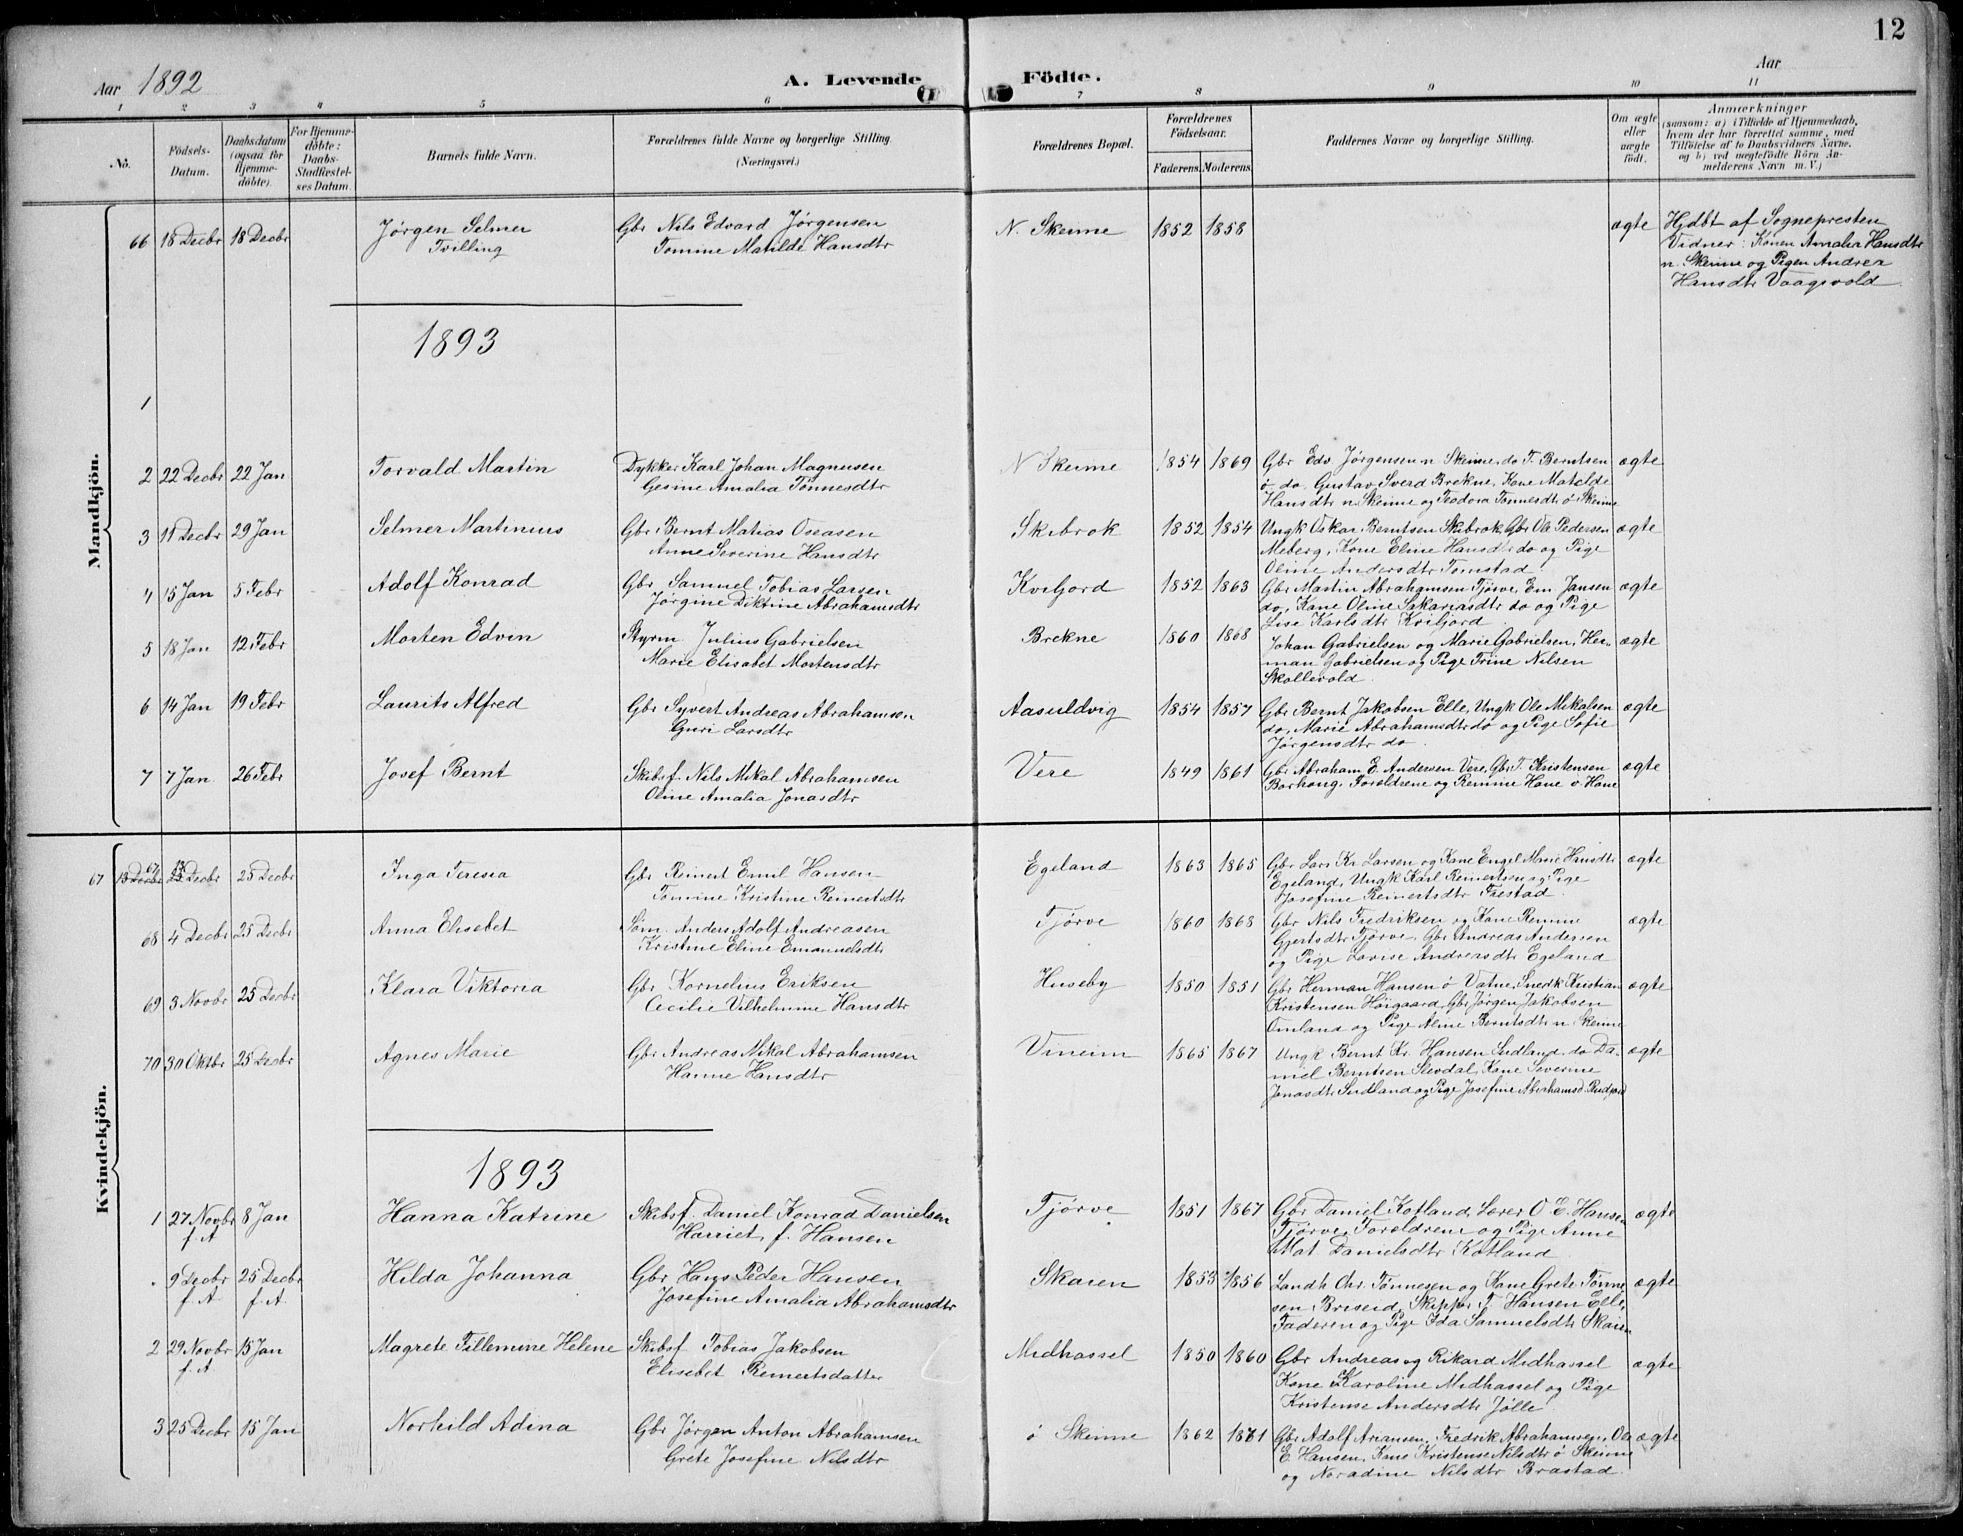 12
Aar 1892
A. Levende Födte.
Aar
1 2 3 4 5 6 7 8 9 10 11
No.
Födsels-Datum.
Daabsdatum (ogsaa for Hjemme-döbte).
For Hjemme-döbte: Daabs-Stadfæstel-ses Datum.
Barnets fulde Navn.
Forældrenes fulde Navne og borgerlige Stilling (Næringsvei.)
Forældrenes Bopæl.
Forældrenes Födselsaar.
Faderens. Moderens.
Faddernes Navne og borgerlige Stilling.
Om ægte eller uægte födt.
Anmærkninger
(saasom: a) i Tilfælde af Hjemmedaab,
hvem der har forrettet samme, med
Tilföielse af to Daabsvidners Navne.
og b) ved uægtefödte Börn An-
melderens Navn m. V.)
Mandkjön.
66 18 Decbr 18 Decbr Jørgen Selmer Gbr Nils Edvard Jørgensen N. Skeime 1852 1858 ægte Hjdbt af Sognepresten
Tvilling Tomine Matilde Hansdtr Vidner: Konen Amalia Hansdtr
n. Skeime og Pigen Andrea
Hansdtr Vaagsvold
1893
1
2 22 Decbr 22 Jan Torvald Martin Dykker Karl Johan Magnusen N Skeime 1854 1869 Gbr Edv Jørgensen n Skeime, do T. Berntsen ægte
Gesine Amalia Tønnesdtr ø do, Gustav Sverd Brekne, Kone Matilde
Hansdtr n. Skeime og Teodora Tønnesdtr ø Skeime
3 11 Decbr 29 Jan Selmer Martinius Gbr Bernt Matias Oseasen Skibrok 1852 1854 Ungk Oskar Berntsen Skibrok, Gbr Ole Pedersen ægte
Anne Severine Hansdtr Meberg, Kone Eline Hansdtr do og Pige
Oline Andersdtr Tomstad
4 15 Jan 5 Febr Adolf Konrad Gbr Samuel Tobias Larsen Kviljord 1852 1863 Gbr Martin Abrahamsen Tjørve, Em Jansen ægte
Jørgine Diktine Abrahamsdtr do, Kone Oline Sakariasdtr do og Pige
Lise Karlsdtr Kviljord
5 18 Jan 12 Febr Morten Edvin Styrm Julius Gabrielsen Brekne 1860 1868 Johan Gabrielsen og Marie Gabrielsen, Her- ægte
Marie Elisabet Mortensdtr man Gabrielsen og Pige Trine Nilsen
Skollevold
6 14 Jan 19 Febr Laurits Alfred Gbr Syvert Andreas Abrahamsen Aasuldvig 1854 1857 Gbr Bernt Jakobsen Elle, Ungk Ole Mikalsen ægte
Guri Larsdtr do, Marie Abrahamsdtr do og Pige Sofie
Jørgensdtr do
7 7 Jan 26 Febr Josef Bernt Skibsf. Nils Mikal Abrahamsen Vere 1849 1861 Gbr Abraham E. Andersen Vere, Gbr T. Kristensen ægte
Oline Amalia Jonasdtr Borhaug, Foreldrene og Remine Hane ø Hane
Kvindekjön.
67 13 Decbr 25 Decbr Inga Teresia Gbr Reinert Emil Hansen Egeland 1863 1865 Gbr Lars Kr Larsen og Kone Engel Marie Hansdtr ægte
Tomine Kristine Reinertsdtr Egeland, Ungk Karl Reinertsen og Pige
Josefine Reinertsdtr Frestad
68 4 Decbr 25 Decbr Anna Elisebet Søm. Anders Adolf Andreasen Tjørve 1860 1868 Gbr Nils Fredriksen og Kone Remine ægte
Kristine Eline Emanuelsdtr Gjertsdtr Tjørve, Gbr Andreas Andersen
og Pige Lovise Andreasdtr Egeland
69 3 Novbr 25 Decbr Klara Viktoria Gbr Kornelius Eriksen Huseby 1850 1851 Gbr Herman Hansen ø Vatne, Snedk Kristian ægte
Cecilie Vilhelmine Hansdtr Kristensen Høigaard, Gbr Jørgen Jakobsen
Omland og Pige Aline Berntsdtr n Skeime
70 30 Oktbr 25 Decbr Agnes Marie Gbr Andreas Mikal Abrahamsen Vineim 1865 1867 Ungk Bernt Kr. Hansen Sudland, do Da- ægte
Hanne Hansdtr niel Berntsen Slevdal, Kone Severine
Jonasdtr Sudland og Pige Josefine Abrahamsd
1893
1 27 Novbr 8 Jan Hanna Katrine Skibsf. Daniel Konrad Danielsen Tjørve 1851 1867 Gbr Daniel Kotland, Lærer O E. Hansen ægte
f. A Harriet f. Hansen Tjørve, Foreldrene og Pige Anne
Mat Danielsdtr Kotland
. 9 Decbr 25 Decbr Hilda Johanna Gbr Hans Peder Hansen Skaren 1853 1856 Landh Chr Tønnesen og Kone Grete Tønne ægte
f. A f. A. Josefine Amalia Abrahamsdtr sen Briseid, Skipper T. Hansen Elle,
Faderen og Pige Ida Samuelsdtr Skaren
2 29 Novbr 15 Jan Magrete Tillemine Helene Skibsf Tobias Jakobsen Midhassel 1850 1860 Gbr Andreas og Rikard Midhassel ægte
f. A Elisebet Reinertsdatter Kone Karoline Midhassel og Pige
Kristense Andersdtr Jølle
3 25 Decbr 15 Jan Norhild Adina Gbr Jørgen Anton Abrahamsen ø Skeime 1862 1861 Gbr Adolf Ariansen, Fredrik Abrahamsen, Ole ægte
Grete Josefine Nilsdtr E. Hansen, Kone Kristense Nilsdtr ø Skeime
og Noradine Nilsdtr Brastad